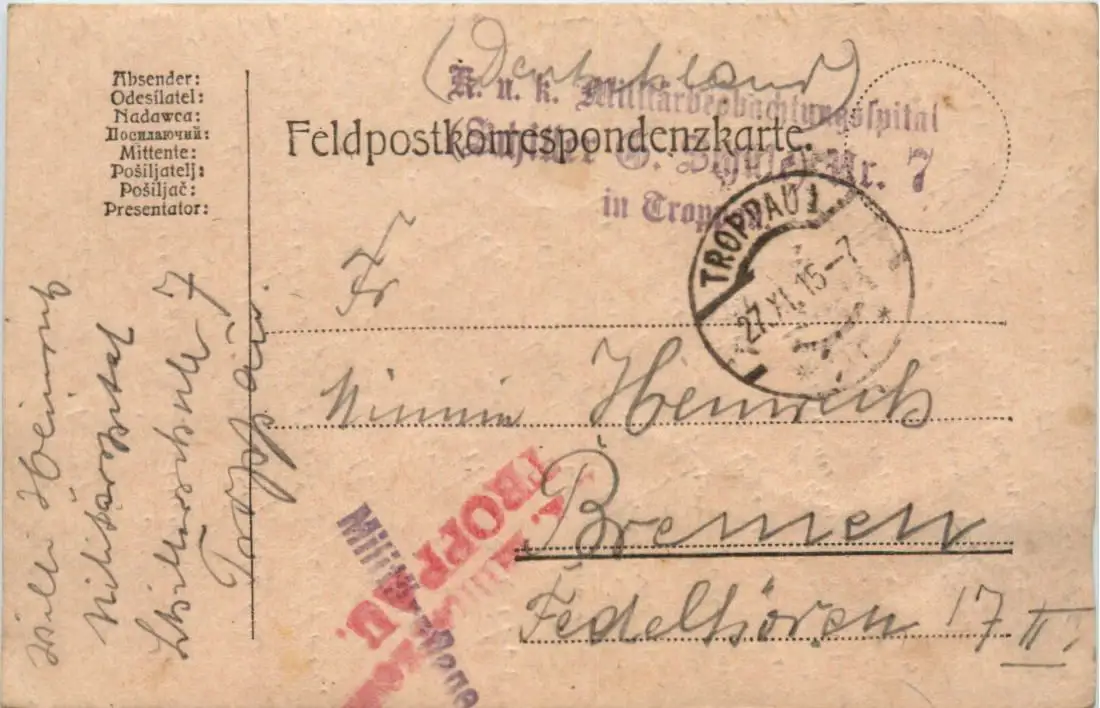 (Deutschland)
K. u. k. Militärbeobachtungsspital
Nr. 7
in Troppau.
Absender:
Odesílatel:
Nadawca:
Посилаючий:
Mittente:
Pošiljatelj:
Pošiljač:
Presentator:
Feldpostkorrespondenzkarte.
TROPPAU 1
27.XI.15-7
Fr
Minnie Heinrich
Bremen
Fedelhören 17 II.
Willi Heinrich
Militärspital
Schillerschule 7
Troppau
TROPPAU.